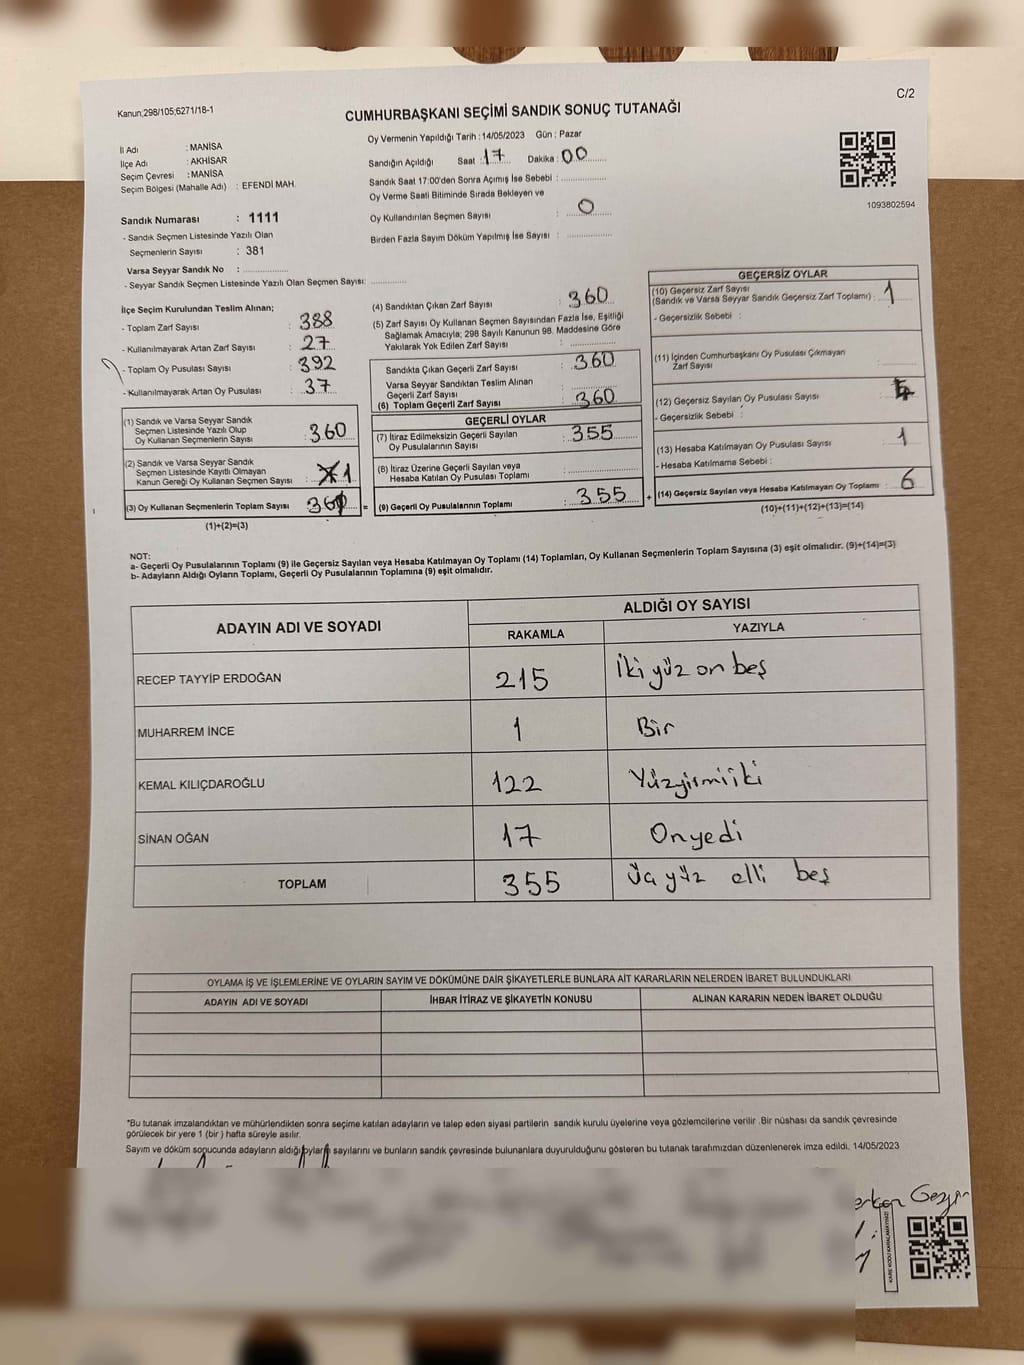 C/2
Kanun,298/105;6271/18-1
CUMHURBAŞKANI SEÇİMİ SANDIK SONUÇ TUTANAĞI
Oy Vermenin Yapıldığı Tarih : 14/05/2023 Gün : Pazar
İl Adı : MANİSA
İlçe Adı : AKHİSAR
Seçim Çevresi : MANİSA
Seçim Bölgesi (Mahalle Adı) : EFENDİ MAH.
Sandığın Açıldığı Saat : 17 Dakika : 00
Sandık Saat 17:00'den Sonra Açımış İse Sebebi :
Oy Verme Saati Bitiminde Sırada Bekleyen ve
Oy Kullandırılan Seçmen Sayısı : 0
Birden Fazla Sayım Döküm Yapılmış İse Sayısı :
1093802594
Sandık Numarası : 1111
- Sandık Seçmen Listesinde Yazılı Olan
Seçmenlerin Sayısı : 381
Varsa Seyyar Sandık No :
- Seyyar Sandık Seçmen Listesinde Yazılı Olan Seçmen Sayısı:
İlçe Seçim Kurulundan Teslim Alınan;
- Toplam Zarf Sayısı : 388
- Kullanılmayarak Artan Zarf Sayısı : 27
- Toplam Oy Pusulası Sayısı : 392
- Kullanılmayarak Artan Oy Pusulası : 37
(1) Sandık ve Varsa Seyyar Sandık
Seçmen Listesinde Yazılı Olup
Oy Kullanan Seçmenlerin Sayısı : 360
(2) Sandık ve Varsa Seyyar Sandık
Seçmen Listesinde Kayıtlı Olmayan
Kanun Gereği Oy Kullanan Seçmen Sayısı : 1
(3) Oy Kullanan Seçmenlerin Toplam Sayısı =
(1)+(2)=(3)
(4) Sandıktan Çıkan Zarf Sayısı : 360
(5) Zarf Sayısı Oy Kullanan Seçmen Sayısından Fazla İse, Eşitliği
Sağlamak Amacıyla; 298 Sayılı Kanunun 98. Maddesine Göre
Yakılarak Yok Edilen Zarf Sayısı :
Sandıkta Çıkan Geçerli Zarf Sayısı : 360
Varsa Seyyar Sandıktan Teslim Alınan
Geçerli Zarf Sayısı :
(6) Toplam Geçerli Zarf Sayısı : 360
GEÇERLİ OYLAR
(7) İtiraz Edilmeksizin Geçerli Sayılan : 355
Oy Pusulalarının Sayısı
(8) İtiraz Üzerine Geçerli Sayılan veya
Hesaba Katılan Oy Pusulası Toplamı :
(9) Geçerli Oy Pusulalarının Toplamı : 355 +
GEÇERSİZ OYLAR
(10) Geçersiz Zarf Sayısı
(Sandık ve Varsa Seyyar Sandık Geçersiz Zarf Toplamı) : 1
- Geçersizlik Sebebi :
(11) İçinden Cumhurbaşkanı Oy Pusulası Çıkmayan
Zarf Sayısı :
(12) Geçersiz Sayılan Oy Pusulası Sayısı :
- Geçersizlik Sebebi :
(13) Hesaba Katılmayan Oy Pusulası Sayısı : 1
- Hesaba Katılmama Sebebi :
(14) Geçersiz Sayılan veya Hesaba Katılmayan Oy Toplamı : 6
(10)+(11)+(12)+(13)=(14)
NOT:
a- Geçerli Oy Pusulalarının Toplamı (9) ile Geçersiz Sayılan veya Hesaba Katılmayan Oy Toplamı (14) Toplamları, Oy Kullanan Seçmenlerin Toplam Sayısına (3) eşit olmalıdır. (9)+(14)=(3)
b- Adayların Aldığı Oyların Toplamı, Geçerli Oy Pusulalarının Toplamına (9) eşit olmalıdır.
ADAYIN ADI VE SOYADI ALDIĞI OY SAYISI
RAKAMLA YAZIYLA
RECEP TAYYİP ERDOĞAN 215 İki yüz on beş
MUHARREM İNCE 1 Bir
KEMAL KILIÇDAROĞLU 122 Yüzyirmiiki
SİNAN OĞAN 17 Onyedi
TOPLAM 355 Üç yüz elli beş
OYLAMA İŞ VE İŞLEMLERİNE VE OYLARIN SAYIM VE DÖKÜMÜNE DAİR ŞİKAYETLERLE BUNLARA AİT KARARLARIN NELERDEN İBARET BULUNDUKLARI
ADAYIN ADI VE SOYADI İHBAR İTİRAZ VE ŞİKAYETİN KONUSU ALINAN KARARIN NEDEN İBARET OLDUĞU
*Bu tutanak imzalandıktan ve mühürlendikten sonra seçime katılan adayların ve talep eden siyasi partilerin sandık kurulu üyelerine veya gözlemcilerine verilir .Bir nüshası da sandık çevresinde
görülecek bir yere 1 (bir ) hafta süreyle asılır.
Sayım ve döküm sonucunda adayların aldığı oyların sayılarını ve bunların sandık çevresinde bulunanlara duyurulduğunu gösteren bu tutanak tarafımızdan düzenlenerek imza edildi. 14/05/2023